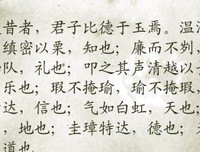 昔者，君子比德于玉焉。温润
缜密以栗，知也；廉而不刿，
队，礼也；叩之其声清越以
乐也；瑕不掩瑜，瑜不掩瑕，
达，信也；气如白虹，天也；
，地也；圭璋特达，德也；
道也。